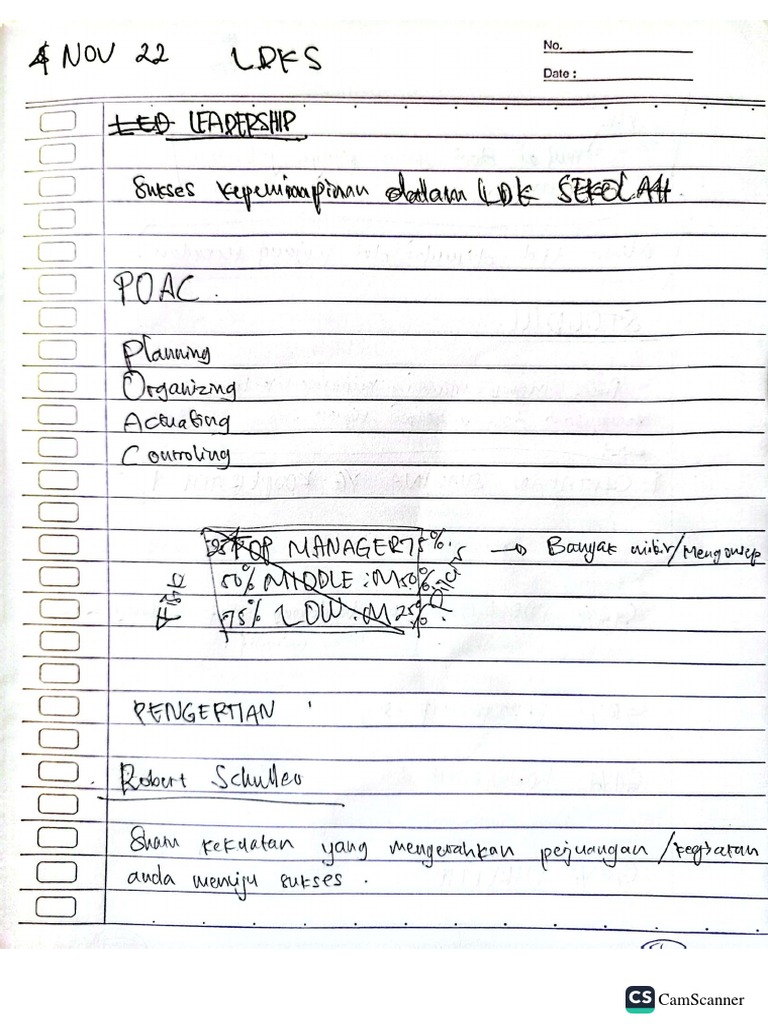 4 NOV 22 LDKS
No.
Date :
LED LEADERSHIP
Sukses kepemimpinan dalam LDK SEKOLAH.
POAC.
Planning
Organizing
Actuating
Controling
25% TOP MANAGER 75%. → Banyak mikir/Mengonsep
50% MIDDLE : M 50%
75% LOW : M 25%.
Fisik
Pikiris
PENGERTIAN
Robert Schuller
Suatu kekuatan yang mengerahkan perjuangan /kegiatan
anda menuju sukses.
CS CamScanner